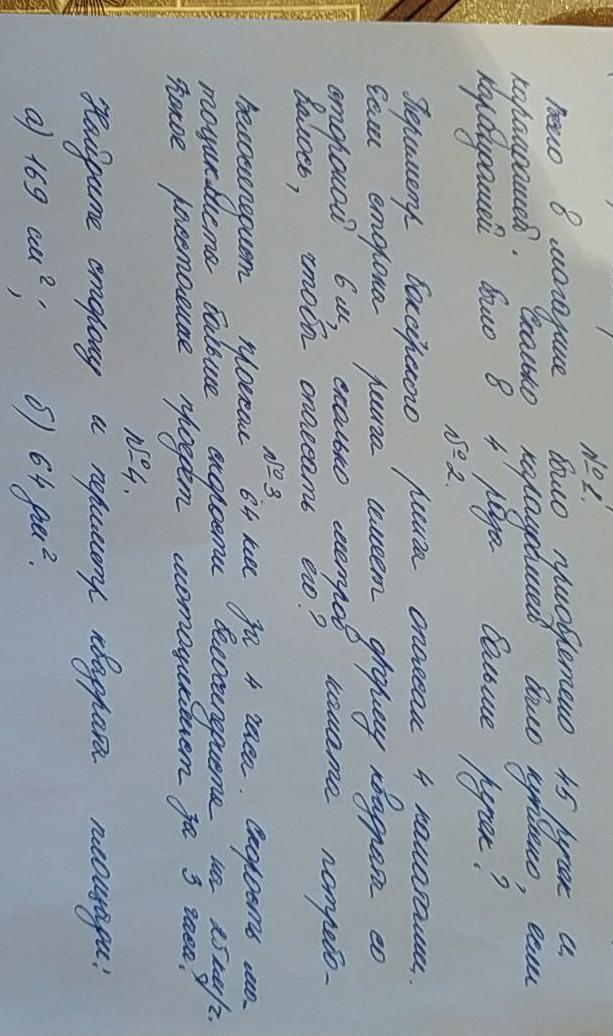 №1.
Всего в магазине было приобретено 45 ручек и
карандашей. Сколько карандашей было куплено, если
карандашей было в 4 раза больше ручек?
№2.
Периметр боксёрского ринга описан 4 канатами.
Если сторона ринга имеет форму квадрата со
стороной 6 м, сколько метров каната потребо-
валось, чтобы описать его?
№3
Велосипедист проехал 64 км за 4 часа. Скорость мо-
тоциклиста больше скорости велосипедиста на 25 км/ч.
Какое расстояние проедет мотоциклист за 3 часа?
№4.
Найдите сторону и периметр квадрата площади:
а) 169 см²; б) 64 дм².